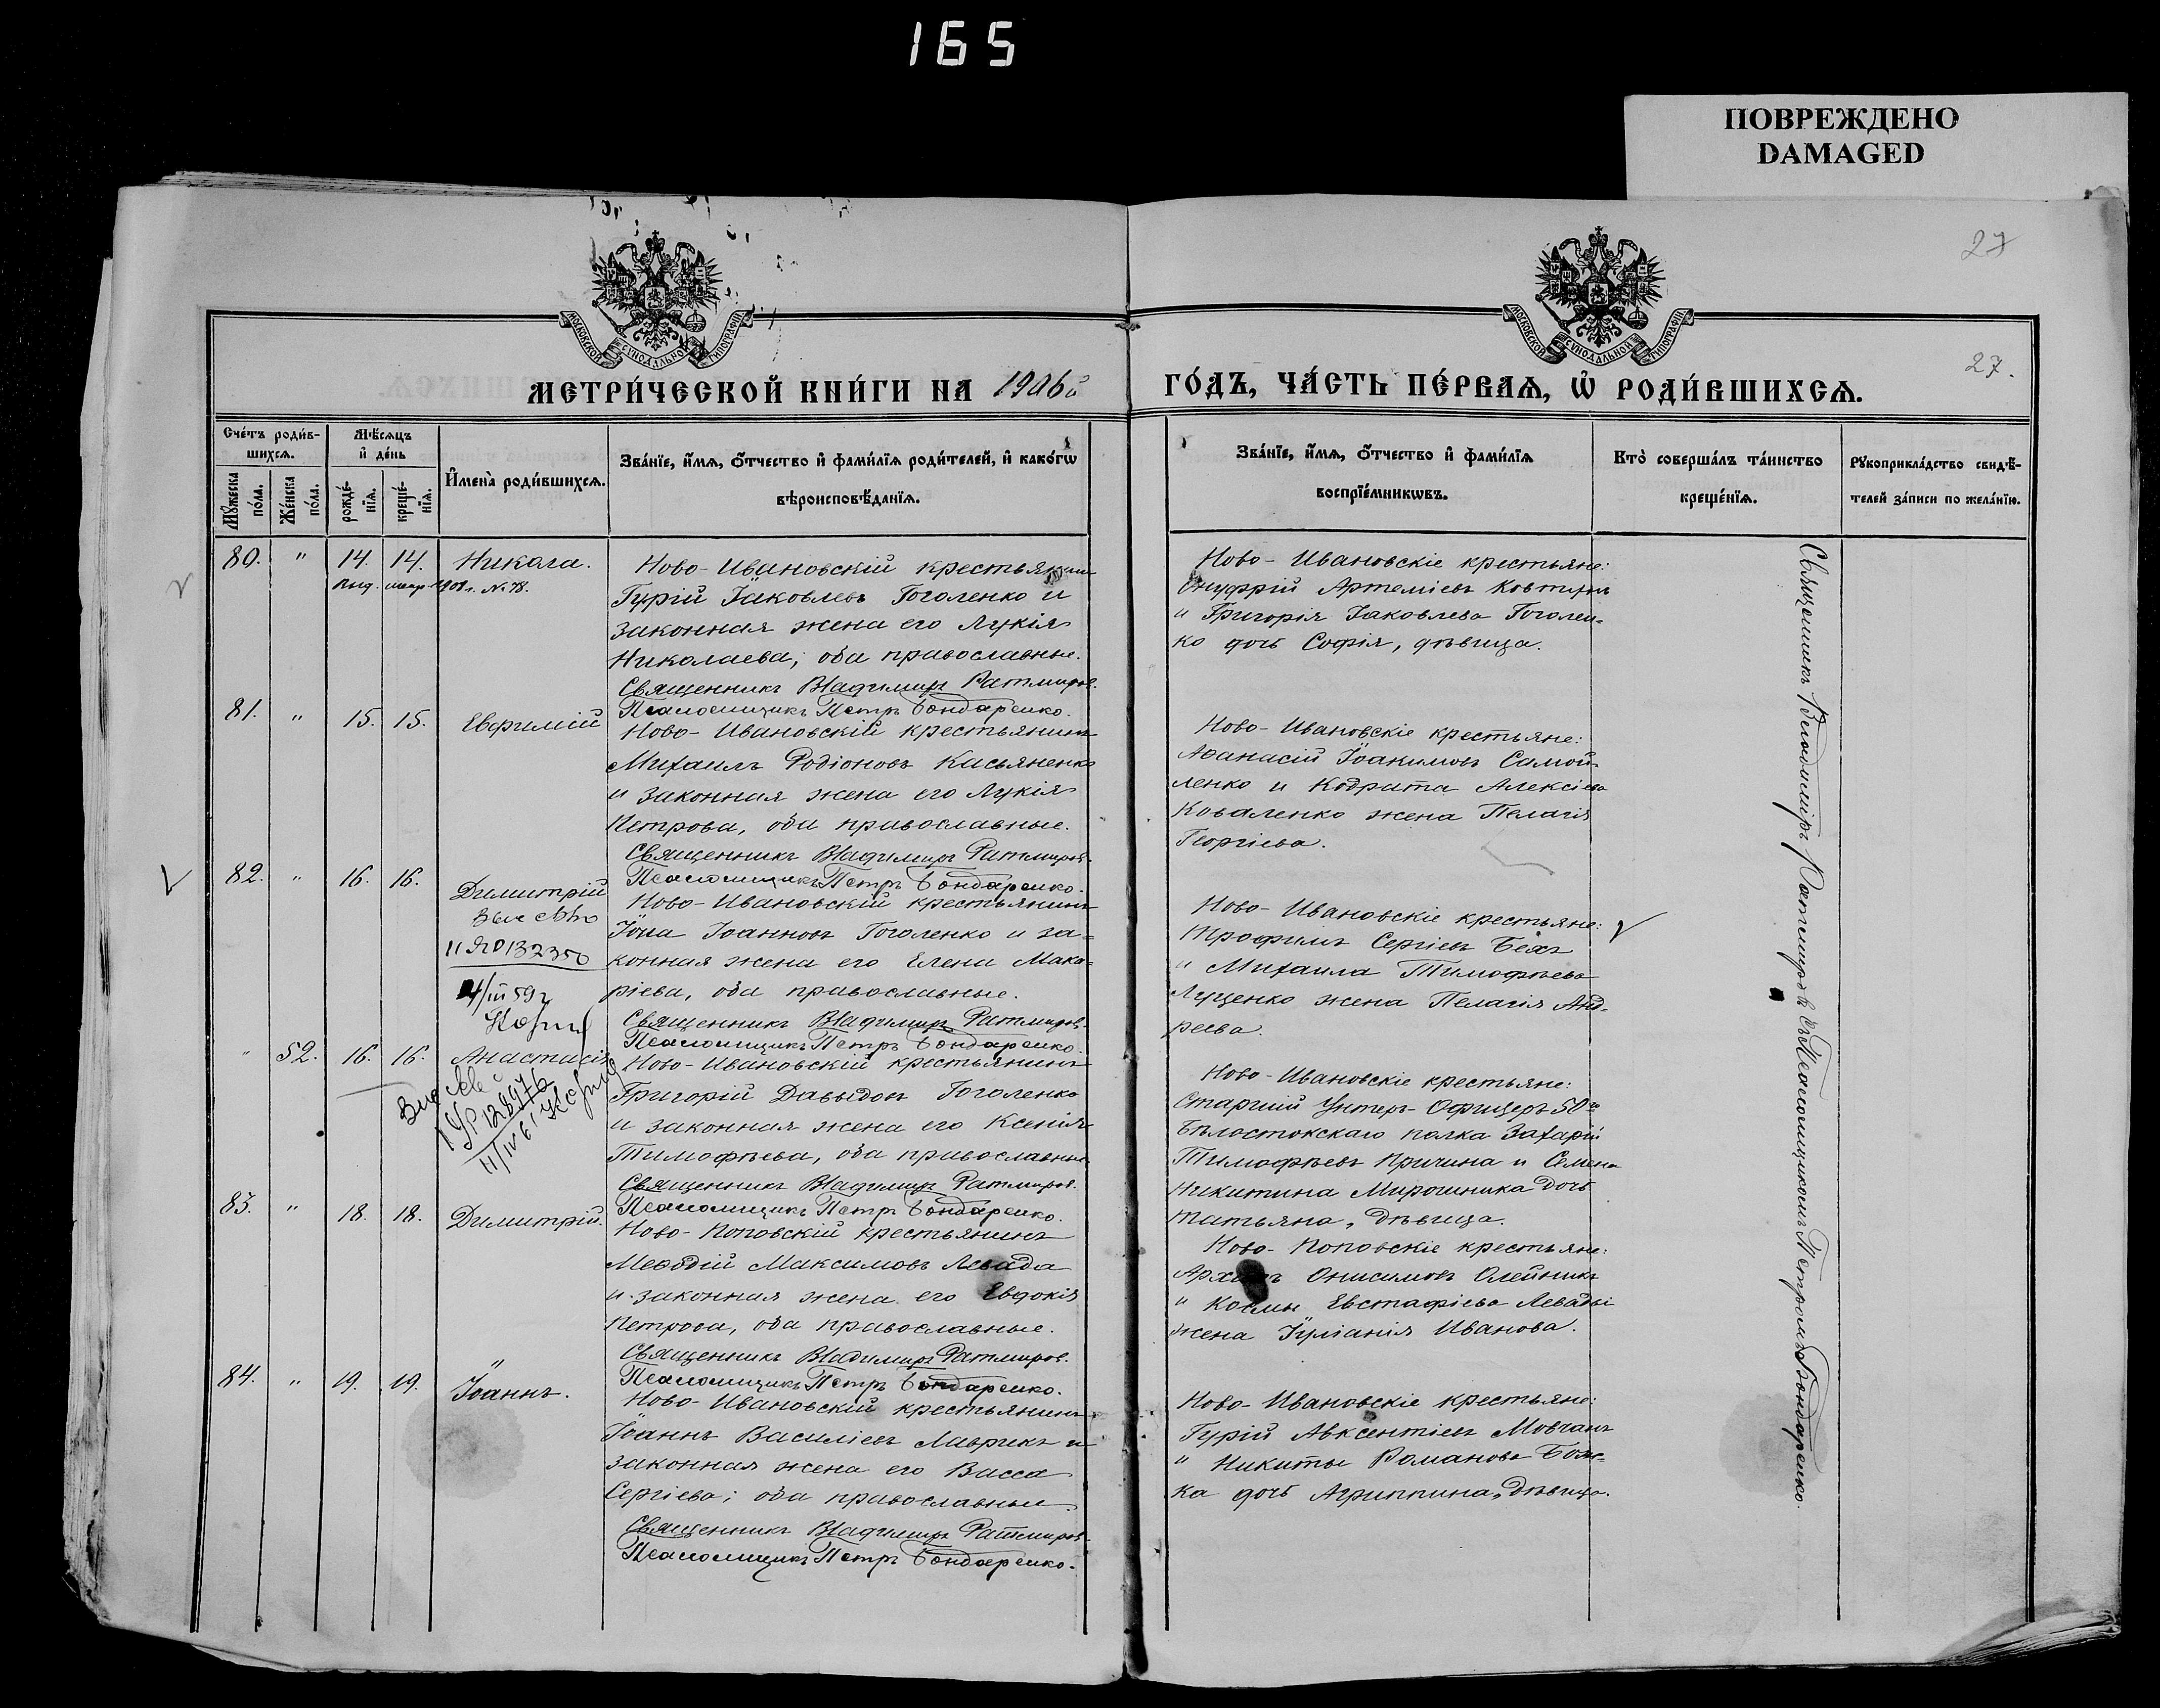 165
ПОВРЕЖДЕНО
DAMAGED
27
27.
МОСКОВСКОЙ СѴНОДАЛЬНОЙ ТИПОГРАФІИ
МОСКОВСКОЙ СѴНОДАЛЬНОЙ ТИПОГРАФІИ
МЕТРИ́ЧЕСКОЙ КНИ́ГИ НА 1906й
ГО́ДЪ, ЧА́СТЬ ПЕ́РВАѦ, Ѡ҆ РОДИ́ВШИХСѦ.
Сче́тъ роди́в-
шихсѧ.
Мꙋ́жеска по́ла.
Же́нска по́ла.
Мѣ́сѧцъ
и҆ де́нь
рожде́-
нїѧ.
креще́-
нїѧ.
И҆мена̀ роди́вшихсѧ.
Зва́нїе, и҆́мѧ, ѻ҆́тчество и҆ фами́лїѧ роди́телей, и҆ како́гѡ
вѣроисповѣ́данїѧ.
Зва́нїе, и҆́мѧ, ѻ҆́тчество и҆ фами́лїѧ
воспрїе́мникѡвъ.
Кто̀ соверша́лъ та́инство
креще́нїѧ.
Рꙋкоприкла́дство свидѣ́-
телей за́писи по жела́нїю.
80. " 14. 14. Никола.
Выд. метр. 1908 г. № 78.
Ново-Ивановскій крестьянин
Гурій Іаковлевъ Гоголенко и
законная жена его Лукія
Николаева; оба православные.
Священникъ Владимиръ Ратмиров.
Псаломщикъ Петръ Бондаренко.
Ново-Ивановскіе крестьяне:
Онуфрій Артеміевъ Ковтунъ
и Григорія Іаковлева Гоголен-
ко дочь Софія, дѣвица.
81. " 15. 15. Евфимій
Ново-Ивановскій крестьянинъ
Михаилъ Родіоновъ Касьяненко
и законная жена его Лукія
Петрова, оба православные.
Священникъ Владимиръ Ратмиров.
Псаломщикъ Петръ Бондаренко.
Ново-Ивановскіе крестьяне:
Аѳанасій Іоакимовъ Самой-
ленко и Кодрата Алексіева
Коваленко жена Пелагія
Георгіева.
82. " 16. 16. Димитрій
II ЯП 032350
4/III 59г
Ново-Ивановскій крестьянинъ
Іона Іоанновъ Гоголенко и за-
конная жена его Елена Мака-
ріева, оба православные.
Священникъ Владимиръ Ратмиров.
Псаломщикъ Петръ Бондаренко.
Ново-Ивановскіе крестьяне:
Трофимъ Сергіевъ Бѣхъ
и Михаила Тимоѳѣева
Луценко жена Пелагія Анд-
реева.
" 52. 16. 16. Анастасія
Ново-Ивановскій крестьянинъ
Григорій Давыдовъ Гоголенко
и законная жена его Ксенія
Тимофѣева, оба православные
Священникъ Владимиръ Ратмиров.
Псаломщикъ Петръ Бондаренко.
Ново-Ивановскіе крестьяне:
Старшій Унтеръ-Офицеръ 50го
Бѣлостокскаго полка Захарій
Тимофѣевъ Причина и Семена
Никитина Мирошника дочь
Татьяна, дѣвица.
83. " 18. 18. Димитрій.
Ново-Поповскій крестьянинъ
Меѳодій Максимовъ Левада
и законная жена его Евдокія
Петрова, оба православные.
Священникъ Владимиръ Ратмиров.
Псаломщикъ Петръ Бондаренко.
Ново-Поповскіе крестьяне:
Онисимовъ Олейникъ
и Космы Евстафіева Левады
жена Іуліанія Иванова.
84. " 19. 19. Іоаннъ.
Ново-Ивановскій крестьянинъ
Іоаннъ Василіевъ Лаврикъ и
законная жена его Васса
Сергіева; оба православные.
Священникъ Владимиръ Ратмиров.
Псаломщикъ Петръ Бондаренко.
Ново-Ивановскіе крестьяне:
Гурій Авксентіевъ Мовчанъ
и Никиты Романова Бояс-
ка дочь Агриппина, дѣвица.
Священникъ Владимиръ Ратмировъ съ Псаломщикомъ Петромъ Бондаренко.